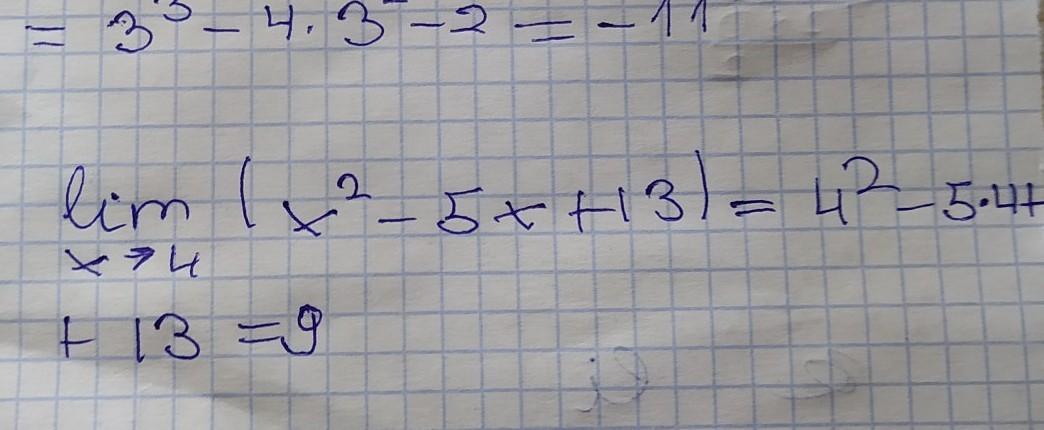 = 3³ - 4 · 3² - 2 = -11
lim (x² - 5x + 13) = 4² - 5·4+
x→4
+ 13 = 9